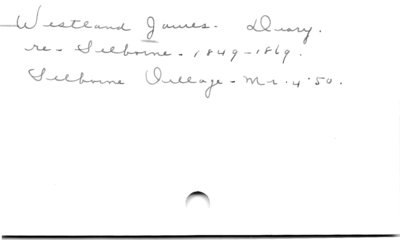 Westland James. Diary.
re - Selborne - 1849-1869.
Selborne Village - Mr. 4'50.